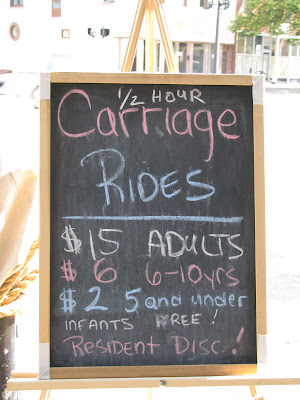 1/2 HOUR
Carriage
RIDES
$15 ADULTS
$6 6-10yrs
$2 5 and under
INFANTS FREE!
Resident Disc.!